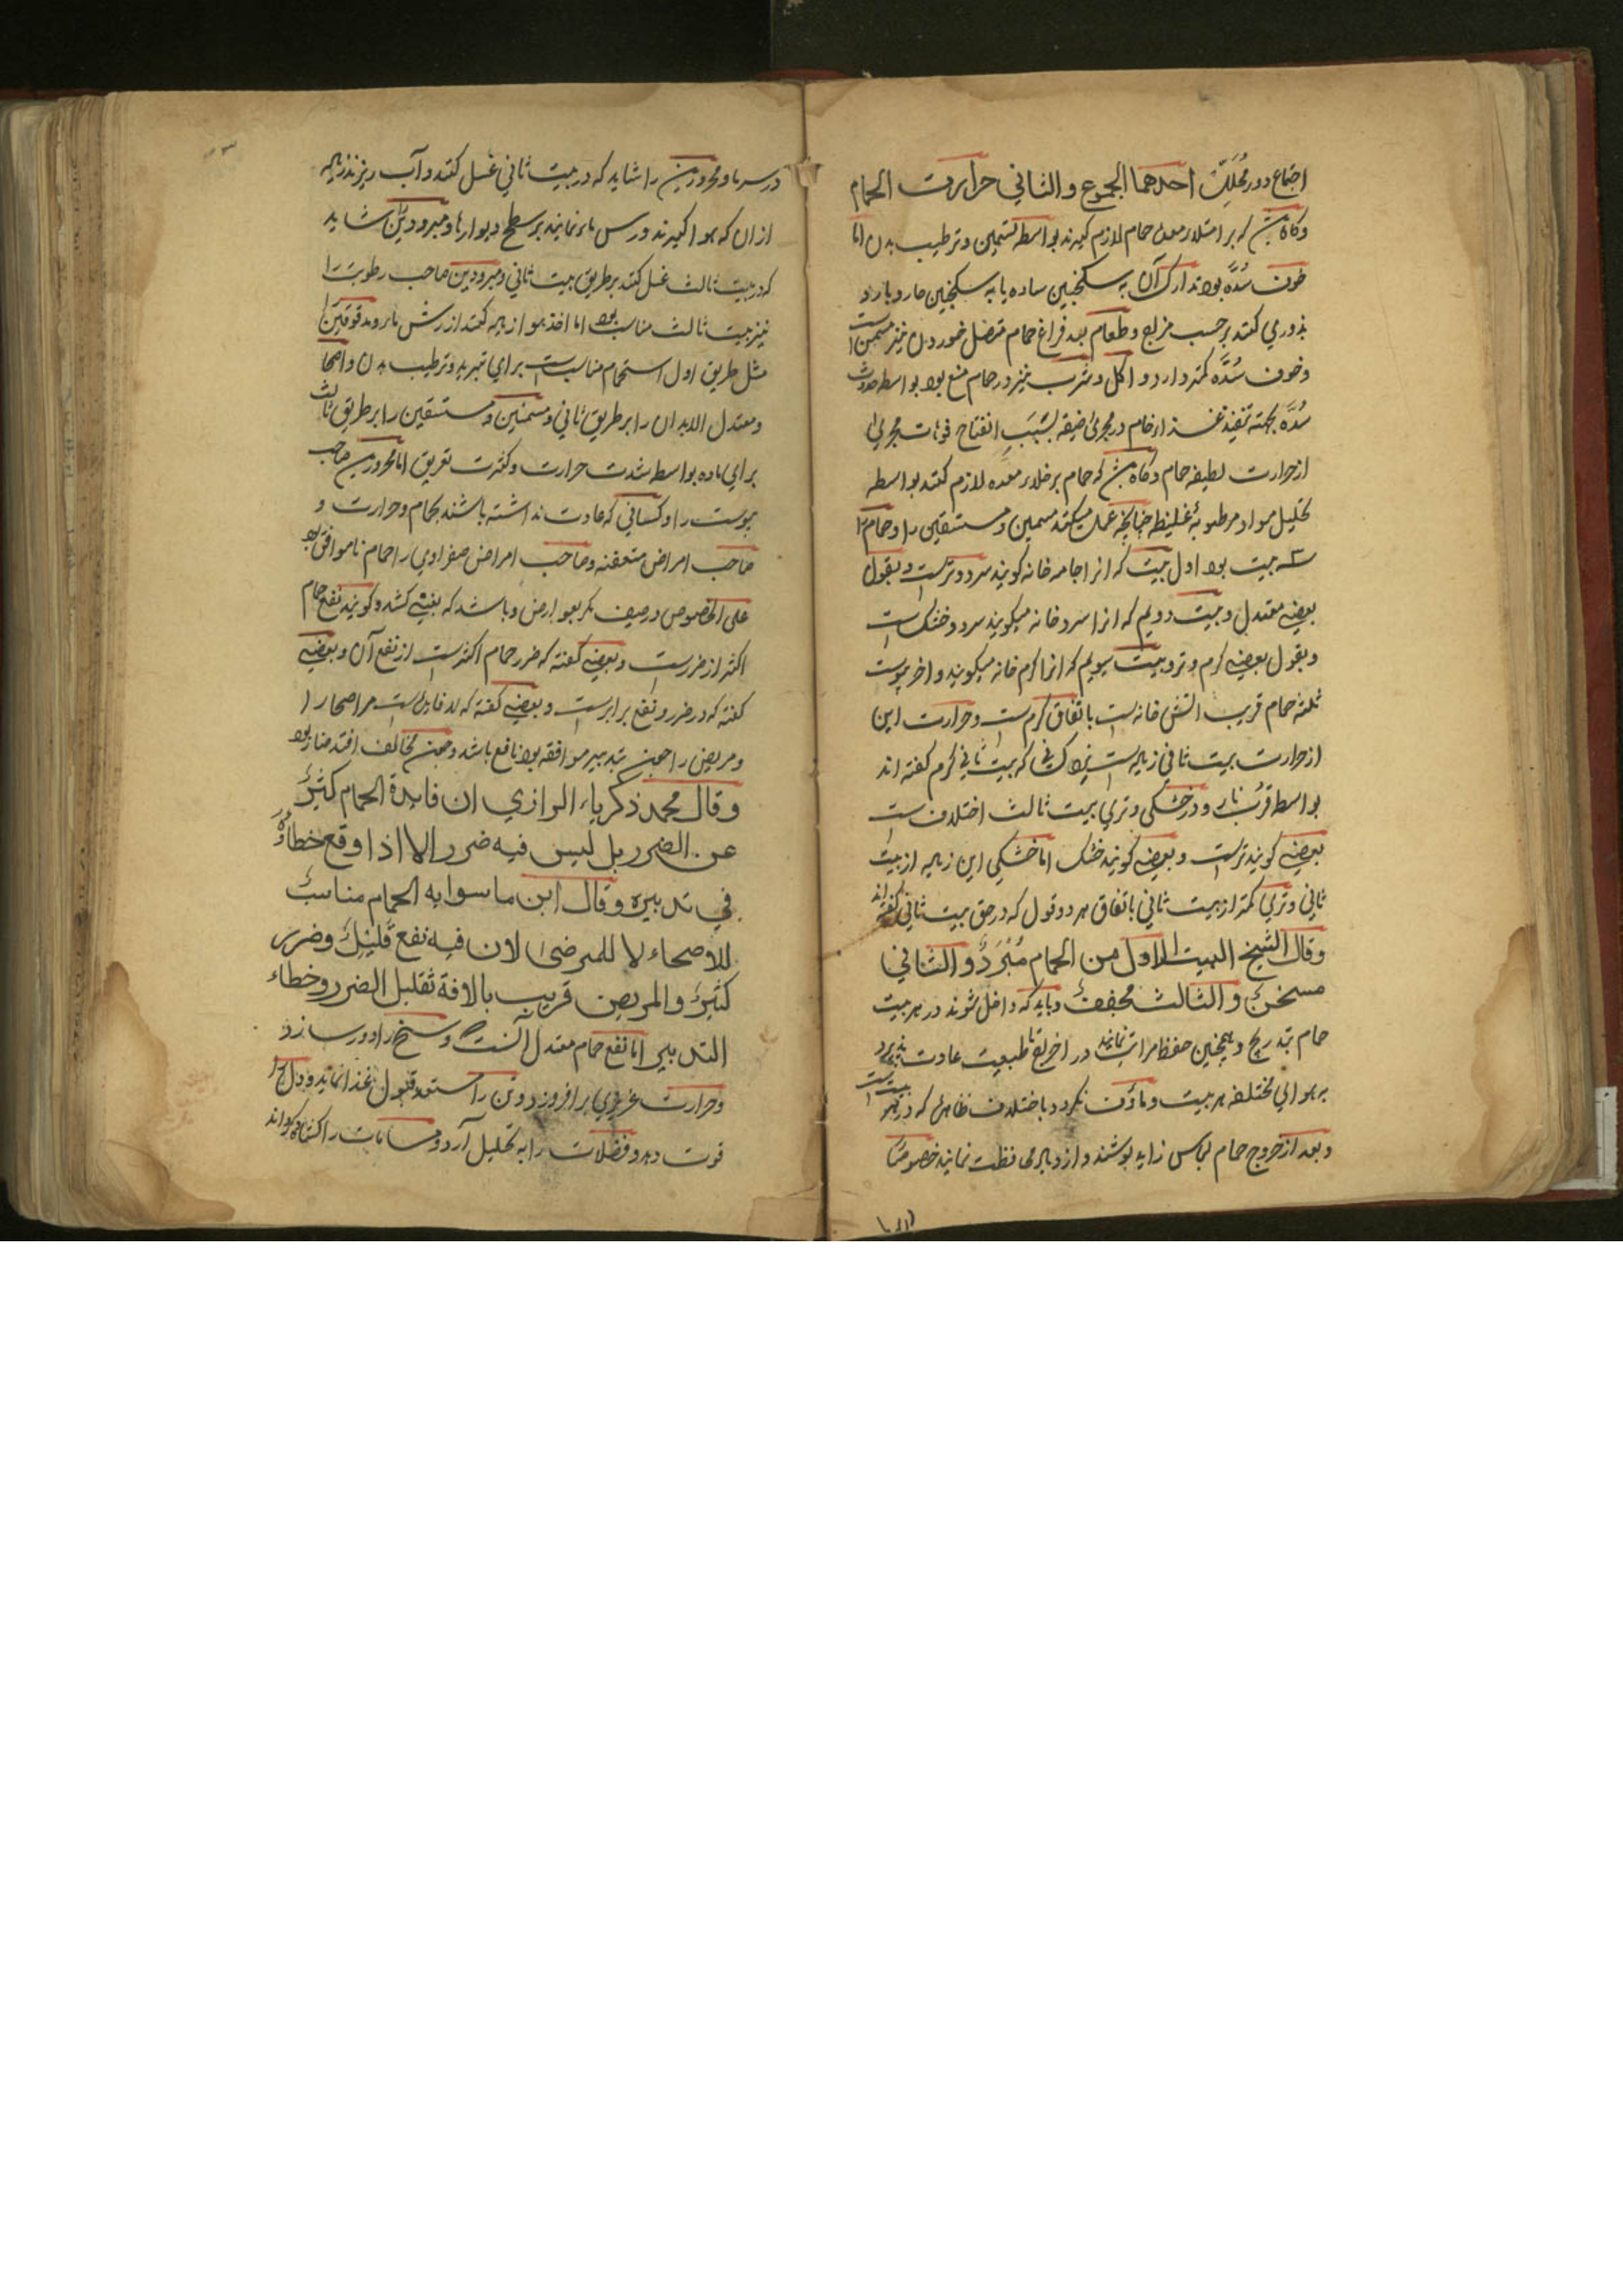 اجتماع دو محلل احدهما الجموع والثاني حرارت الحمام
وکاه باشد که بر امتلاء معده حمام لازم کیرند بواسطه تسمین وترطیب بدن اما
خوف سُدَّه بود تدارک آن به سکنجبین ساده یا به سکنجبین حار و بارد
بذوري کنند برحسب مزاج وطعام بعد فراغ حمام متصل خوردن نیز مسمن است
وخوف سُدَّه کمتر دارد و اکل وشرب نیز در حمام منع بود بواسطه حدوث
سُدَّه بجهته تنفیذ غذاء خام در مجرئ ضیقه بسَبَبِ انفتاح فوهات مجرئ
از حرارت لطیفه حمام وکاه باشد که حمام بر خلاء معده لازم کنند بواسطه
تحلیل مواد مرطوبهٔ غلیظه چنانچه عمل میکنند مسمین و مستسقین را و حمام را
سه بیت بود اول بیت که انرا جامه خانه کویند سرد وترست وبقول
بعضی معتدل وبیت دویم که انرا سردخانه میکویند سرد وخشک است
وبقول بعضی کرم وتر وبیت سیوم که انرا کرم خانه میکویند واخر بیوت
ثلثه حمام قریب اتش خانه است باتفاق کرم است وحرارت این
از حرارت بیت ثانی زیاده است نزد کسانی که بیت ثاني کرم کفته اند
بواسطه قربِ نار و در خشکی وتري بیت ثالث اختلاف است
بعضی کویند ترست وبعضی کویند خشک اما خشکي این زیاده از بیت
ثاني وتري کمتر از بیت ثاني باتفاق هر دو قول که در حق بیت ثانی کفته اند
وقال الشیخ البیت الاول من الحمام مُبَرِّدٌ والثاني
مسخنٌ والثالث مجففٌ وباید که داخل شوند در هر بیت
حمام بتدریج وهمچنین حفظ مراتب نمایند در اخراج تا طبیعت عادت پذیرد
بر هواي مختلفه هر بیت وماؤف نکردد باختلاف ظاهرئ که در هر بیت است
وبعد از خروج حمام لباس زاید پوشند واز هوا محافظت نمایند خصوصًا
در سرما ومحرورین را شاید که در بیت ثاني غسل کنند وآب ریزند زیاده
از ان که هوا کیرند ورس ماء نمایند بر سطح دیوارها ومبرودین را شاید
که در بیت ثالث غسل کنند بر طریق بیت ثاني ومبرودین صاحب رطوبت را
نیز بیت ثالث مناسب بود اما اخذ هوا زیاده کنند از رش ماء ومدقوقین را
مثل طریق اول استحمام مناسب است براي تبرید وترطیب بدن واصحا
ومعتدل الابدان را بر طریق ثاني ومسمنین و مستسقین را بر طریق ثالث
براي ماده بواسطه شدت حرارت وکثرت تعریق اما محرورین صاحب
یبوست را وکساني که عادت نداشته باشند بحمام وحرارت و
صاحب امراض متعفنه وصاحب امراض صفراوي را حمام ناموافق بود
علی الخصوص در صیف مکر بعوارض وباشد که بغشی کشد وکویند نفع حمام
اکثر از ضررست وبعضی کفته که ضرر حمام اکثرست از نفع آن وبعضی
کفته که در ضرر ونفع برابرست وبعضی کفته که له فایده است مر اصحا را
ومریض را چون بتدبیر موافقه بود نافع باشد وچون مخالف افتد ضار بود
وقال محمد ذکریاء الرازي ان فایدة الحمام کثیرٌ
عن الضرر بل لیس فیه ضرر الا اذا وقع خطاؤٌ
في تدبیره وقال ابن ماسوایه الحمام مناسبٌ
للاصحاء لا للمرضیٰ لان فیه نفع قلیلٌ وضرر
کثیرٌ والمریض قریب بالافة ثقلیل الضرر وخطاء
التدبیر اما نفع حمام معتدل آنست که وسخ را دور سازد
وحرارت غریزي برافروزد وتن را مستعد قبول غذا نماید ودل را
قوت دهد وفضلات را به تحلیل آرد ومسامات را کشاده کرداند